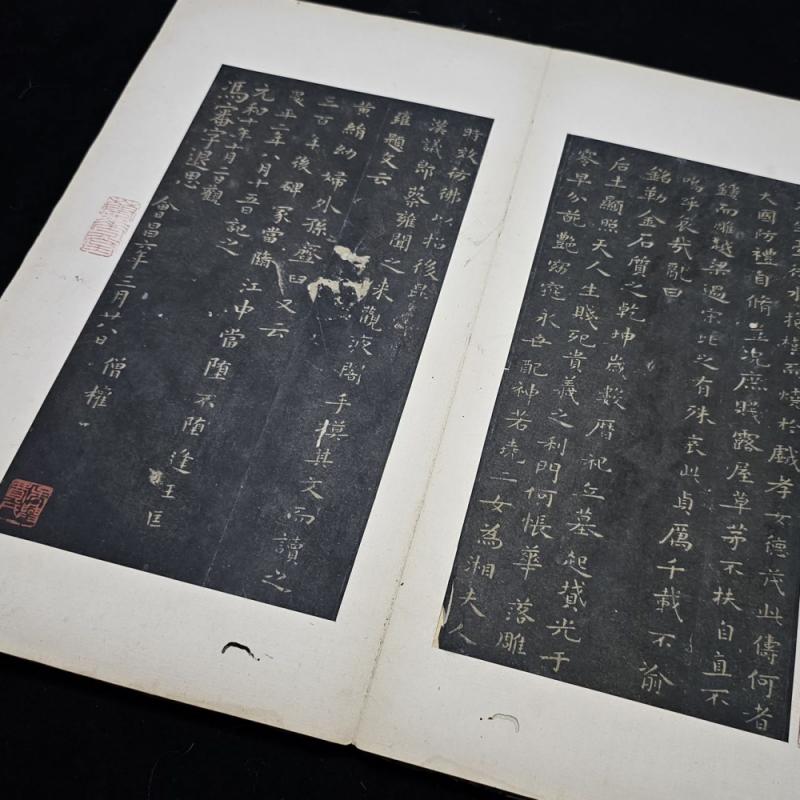 待水抱樹而燒於戲孝女德茂此儔何者
大國防禮自脩豈況庶賤露屋草茅不扶自直不
鏤而雕越梁過宋比之有殊哀此貞厲千載不渝
嗚呼哀哉亂曰
銘勒金石質之乾坤歲數曆祀丘墓起墳光于
后土顯照天人生賤死貴義之利門何悵華落雕
零早分葩艷窈窕永世配神若堯二女為湘夫人
時效彷彿以招後昆
漢議郎蔡雍聞之來觀夜闇手摸其文而讀之
雍題文云
黃絹幼婦外孫臼又云
三百年後碑冢當墮江中當墮不墮逢王匡
昇平二年八月十五日記之
元和十年十月二日觀
馮審字退思 會昌六年三月廿八日 僧權